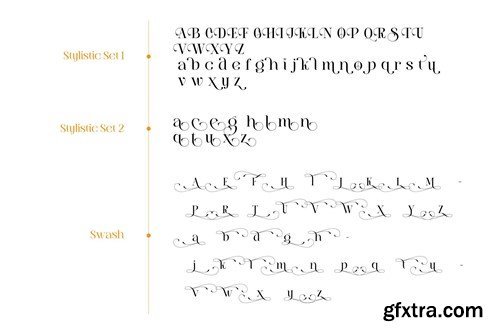 Stylistic Set 1
A B C D E F G H I J K L N O P Q R S T U
V W X Y Z
a b c d e f g h i j k l m n o p q r s t u
v w x y z
Stylistic Set 2
a c e g h l m n
q t u x z
Swash
A E F H I J K L M
P R T U V W X Y Z
a b d g h
j k l m n p q t u
v w x y z
gfxtra.com